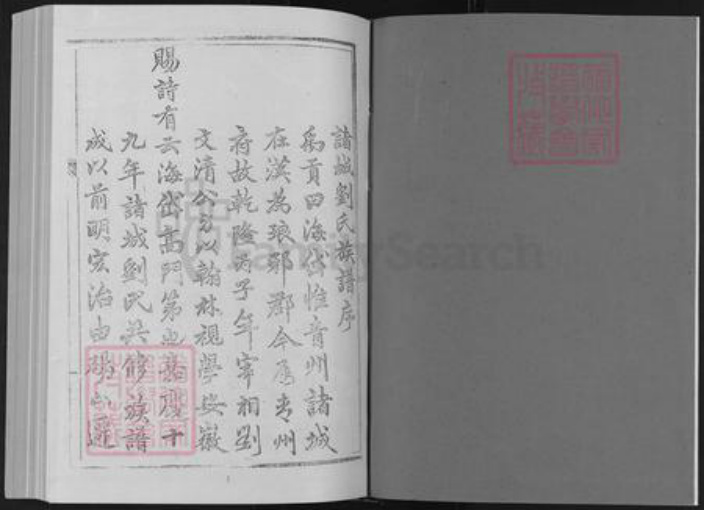 諸城劉氏族譜序
禹貢曰海岱惟青州諸城
在漢為琅邪郡今屬青州
府故乾隆丙子年宰相劉
文清公方以翰林視學安徽
賜詩有云海岱高門第也嘉慶十
九年諸城劉氏共修族譜
成以前明宏治由碭山遷
FamilySearch